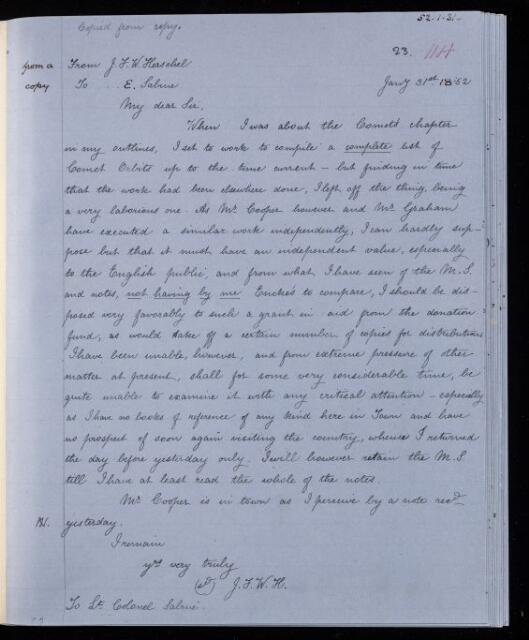 52.1.31.
Copied from copy.
23. 1114
from a
copy
From J.F.W. Herschel
To .... E. Sabine
Jany 31st 1852
My dear Sir.
When I was about the Comets chapter
in my outlines, I set to work to compile a complete list of
Comet Orbits up to the time current – but finding in time
that the work had been elsewhere done, I left off the thing, being
a very laborious one. As Mr. Cooper however and Mr. Graham
have executed a similar work independently, I can hardly sup-
pose but that it must have an independent value, especially
to the English public, and from what I have seen of the M.S.
and notes, not having by me Encke's to compare, I should be dis-
posed very favorably to such a grant in aid from the donation
fund, as would take off a certain number of copies for distribution
I have been unable, however, and from extreme pressure of other
matter at present, shall for some very considerable time, be
quite unable to examine it with any critical attention – especially
as I have no books of reference of any kind here in Town and have
no prospect of soon again visiting the country, whence I returned
the day before yesterday only. I will however retain the M.S.
till I have at least read the whole of the notes.
Mr. Cooper is in town as I perceive by a note recd.
yesterday.
I remain
yrs very truly
(sd) J.F.W.H.
To Lt. Colonel Sabine.